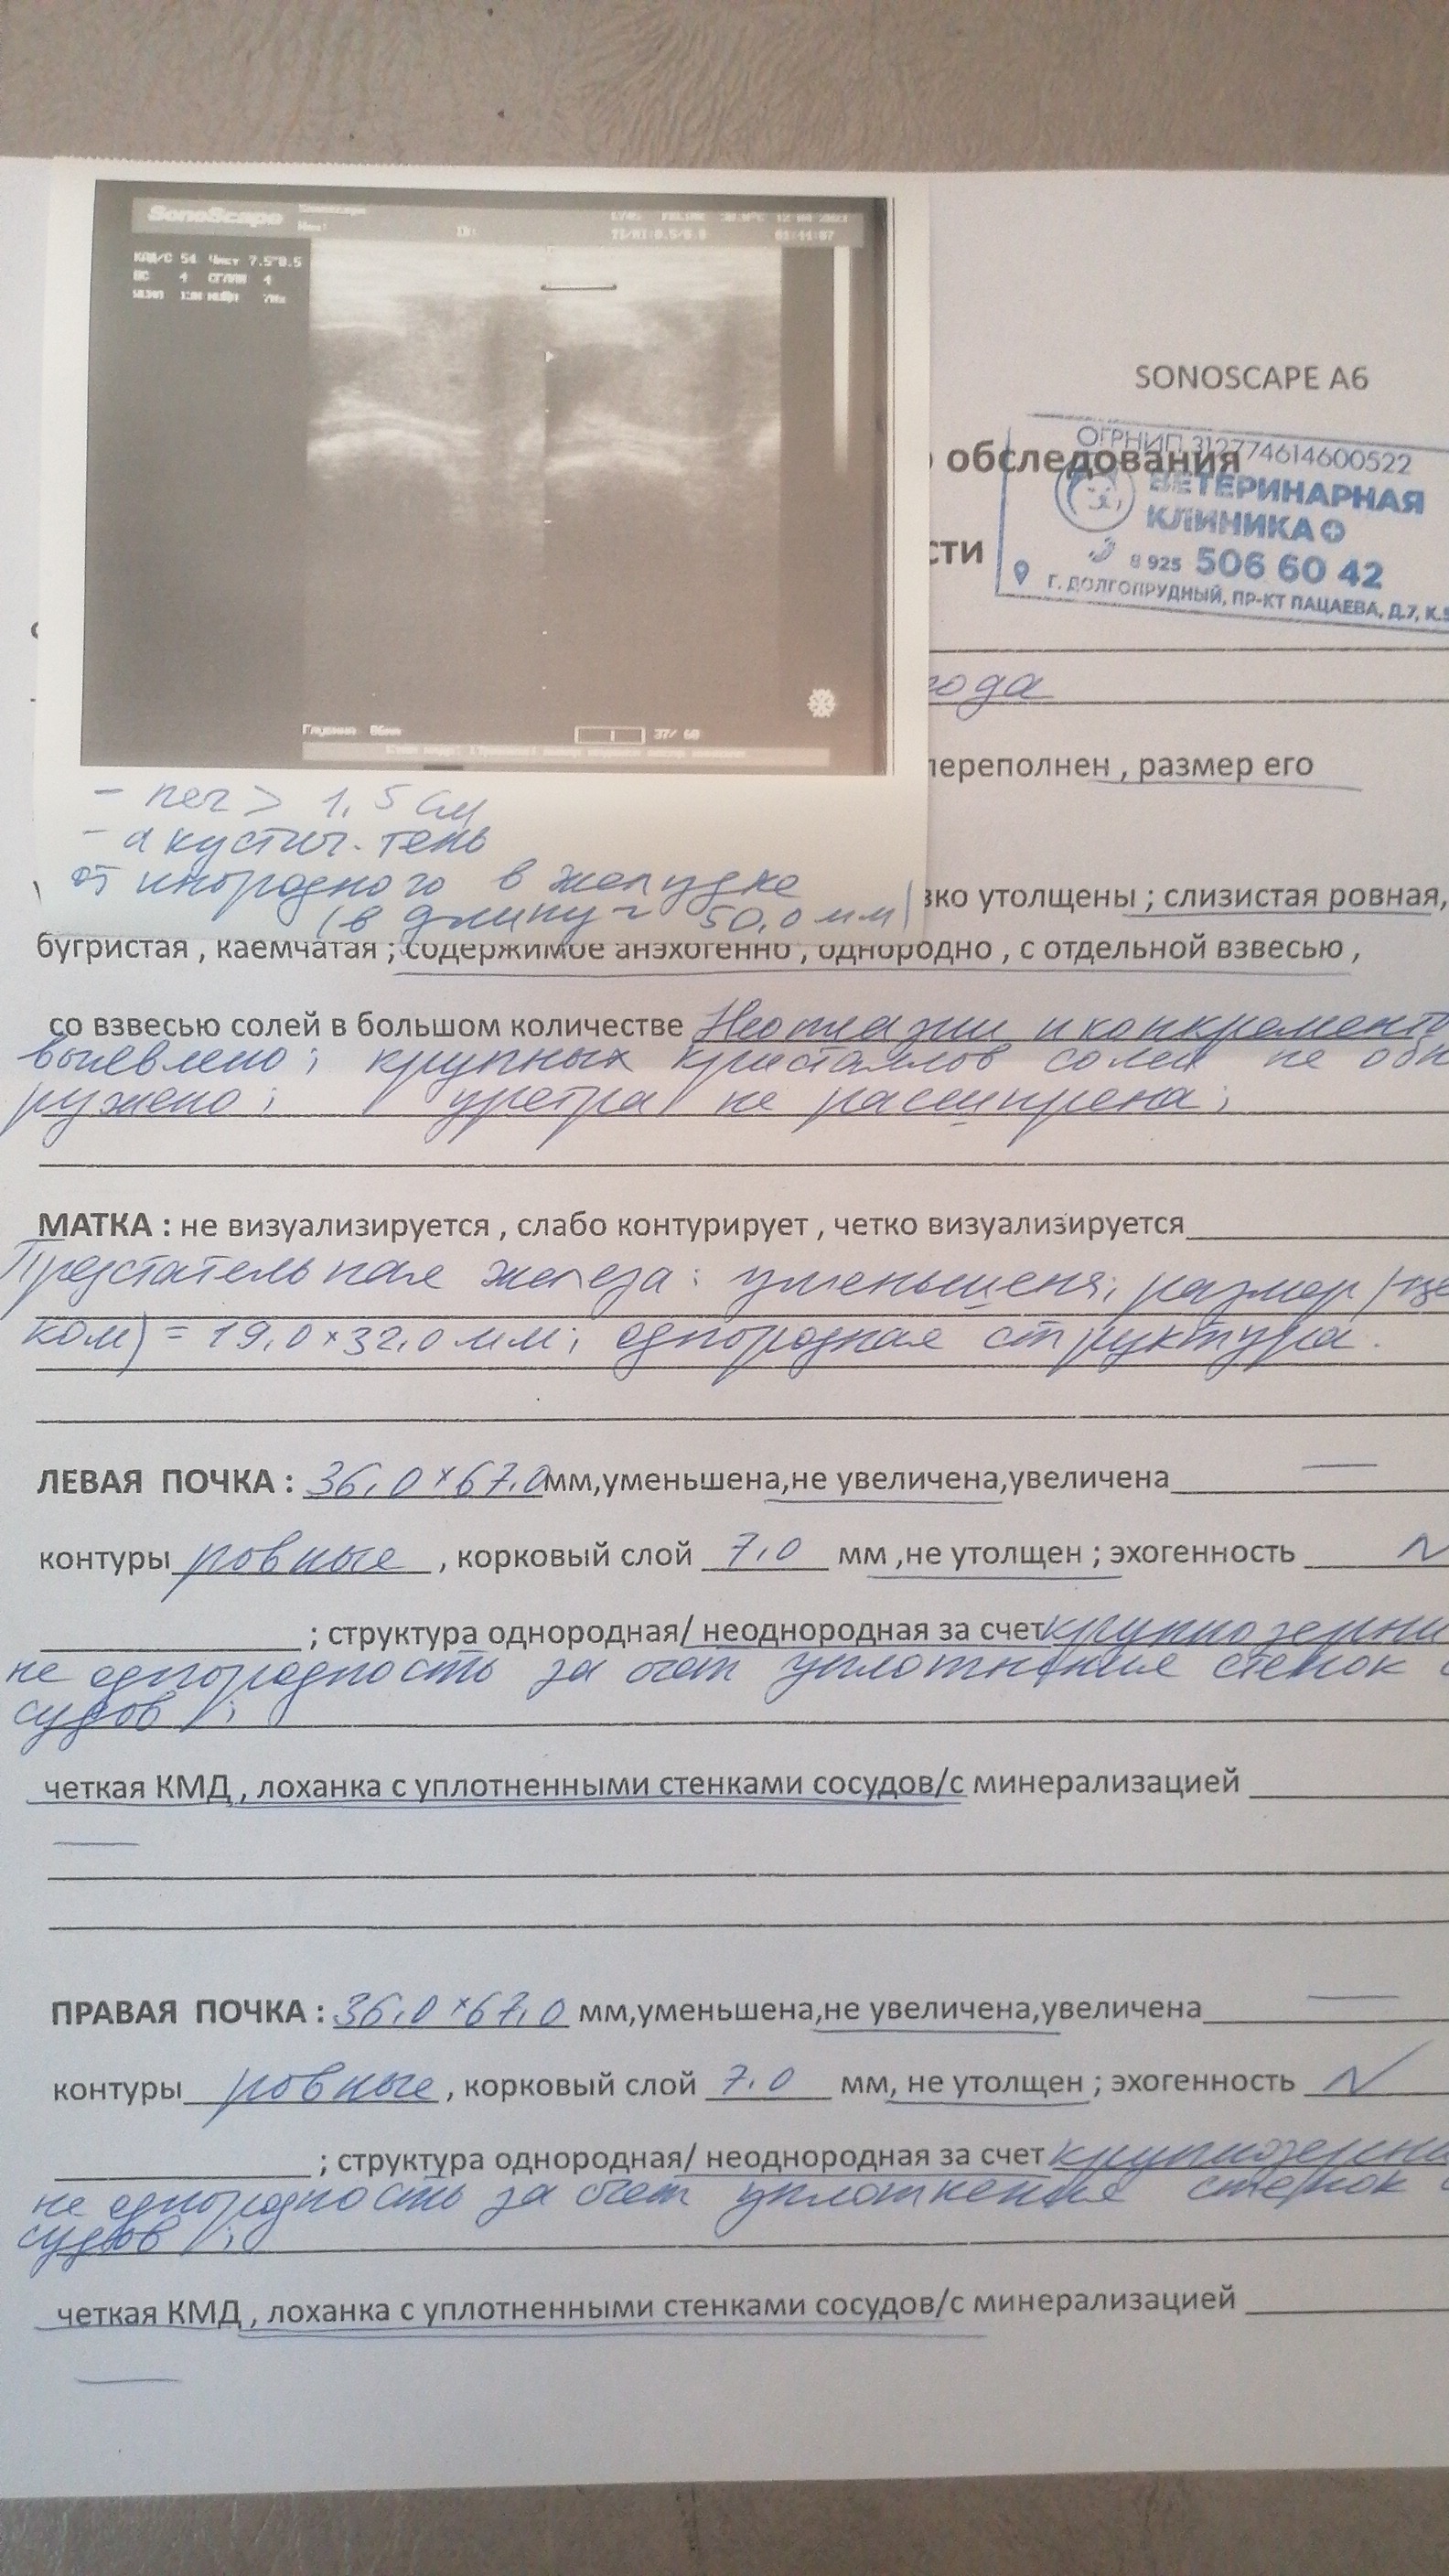 SonoScape Sonoscape
Имя: ID:
01:44:07
КАД/С 54 Част 7.5~8.5
Глубина 86мм
37/ 60
SONOSCAPE A6
обследования
сти
ОГРНИП 312774614600522
ВЕТЕРИНАРНАЯ
КЛИНИКА
8 925 506 60 42
Г. ДОЛГОПРУДНЫЙ, ПР-КТ ПАЦАЕВА, Д.7, К.
года
переполнен , размер его
- печ > 1,5 см
- акустич. тень
от инородного в желудке
(в длину ~ 50,0 мм)
зко утолщены ; слизистая ровная,
бугристая , каемчатая ; содержимое анэхогенно , однородно , с отдельной взвесью ,
со взвесью солей в большом количестве Неоплазии и конкременто
выевлено; крупных кристаллов солей не обн
ружено; уретра не расширена;
МАТКА : не визуализируется , слабо контурирует , четко визуализируется
Предстательная железа: уменьшена; размер
ком) = 19,0 x 32,0 мм; однородная структура.
ЛЕВАЯ ПОЧКА : 36,0 x 67,0 мм,уменьшена,не увеличена,увеличена
контуры ровные , корковый слой 7,0 мм ,не утолщен ; эхогенность N
; структура однородная/ неоднородная за счет крупнозерни
не однородность за счет уплотнения стенок
судов );
четкая КМД , лоханка с уплотненными стенками сосудов/с минерализацией
ПРАВАЯ ПОЧКА : 36,0 x 67,0 мм,уменьшена,не увеличена,увеличена
контуры ровные , корковый слой 7,0 мм, не утолщен ; эхогенность N
; структура однородная/ неоднородная за счет крупнозерни
не однородность за счет уплотнения стенок
судов );
четкая КМД , лоханка с уплотненными стенками сосудов/с минерализацией